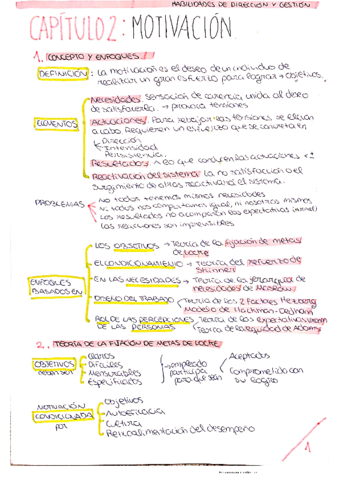 HABILIDADES DE DIRECCIÓN Y GESTIÓN
CAPÍTULO 2: MOTIVACIÓN
1. CONCEPTO Y ENFOQUES
DEFINICIÓN: La motivación es el deseo de un individuo de
realizar un gran esfuerzo para lograr objetivos.
ELEMENTOS
Necesidades: sensación de carencia unida al deseo
de satisfacerla. → provoca tensiones
Actuaciones: Para rebajar las tensiones, se llevan
a cabo. Requieren un esfuerzo que se concreta en
Dirección
Intensidad
Persistencia.
Resultados: A los que conducen las actuaciones
Reactivación del sistema: La no satisfacción o el
surgimiento de otras reactivará el sistema.
PROBLEMAS
No todos tenemos mismas necesidades
Ni todos nos comportamos igual, ni nosotros mismos
Los resultados no acompañan las expectativas
Las reacciones son imprevisibles.
ENFOQUES BASADOS EN
LOS OBJETIVOS → Teoría de la fijación de metas
de Locke
EL CONDICIONAMIENTO → Teoría del refuerzo de
Skinner
EN LAS NECESIDADES → Teoría de la jerarquía de
necesidades de Maslow
DISEÑO DEL TRABAJO
Teoría de los 2 factores Herzberg
Modelo de Hackman-Oldham
ROL DE LAS PERCEPCIONES DE LAS PERSONAS
Teoría de las expectativas Vroom
Teoría de la equidad de Adams
2. TEORÍA DE LA FIJACIÓN DE METAS DE LOCKE
OBJETIVOS
Claros
Difíciles
Mensurables
Especificados
empleado
participa
para que sean
Aceptados
Comprometido con
su logro
MOTIVACIÓN
CONDICIONADA
POR
Objetivos
Autoeficacia
Cultura
Retroalimentación del desempeño
1